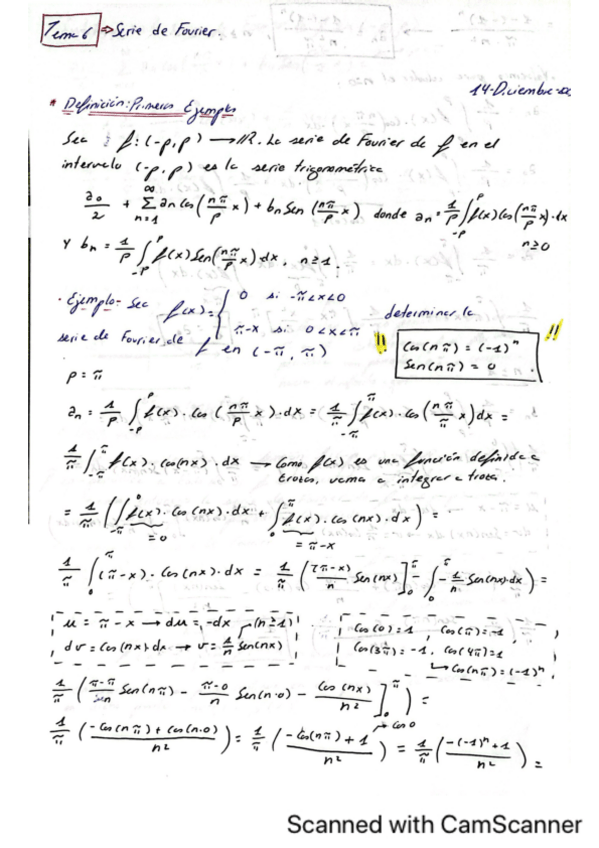 Tema 6 ⇒ Serie de Fourier.
14-Diciembre-
* Definición: Primeros Ejemplos
Sea f: (-p, p) → ℝ. La serie de Fourier de f en el
intervalo (-p, p) es la serie trigonométrica
a₀/2 + Σ_{n=1}^{∞} an cos(nπ/p x) + bn Sen(nπ/p x) donde an = 1/p ∫_{-p}^{p} f(x) cos(nπ/p x)·dx
n≥0
Y bn = 1/p ∫_{-p}^{p} f(x) Sen(nπ/p x) dx, n≥1.
· Ejemplo- Sea f(x) = { 0 si -π<x<0
π-x si 0<x<π determinar la
serie de Fourier de f en (-π, π)
!! Cos(nπ) = (-1)ⁿ !!
Sen(nπ) = 0
p = π
an = 1/p ∫_{-p}^{p} f(x)·cos(nπ/p x)·dx = 1/π ∫_{-π}^{π} f(x)·cos(nπ/π x) dx =
1/π ∫_{-π}^{π} f(x)·cos(nx)·dx → Como f(x) es una función definida a
trozos, vamos a integrar a trozos.
= 1/π (∫_{-π}^{0} f(x)·Cos(nx)·dx + ∫_{0}^{π} f(x)·Cos(nx)·dx) =
=0
= π-x
1/π ∫_{0}^{π} (π-x)·Cos(nx)·dx = 1/π ((π-x)/n Sen(nx)]_{0}^{π} - ∫_{0}^{π} -1/n Sen(nx)dx) =
u = π-x → du = -dx (n≥1)
dv = Cos(nx)·dx → v = 1/n Sen(nx)
Cos(0)=1, Cos(π)=-1,
Cos(3π)=-1, Cos(4π)=1
↳ Cos(nπ)=(-1)ⁿ
1/π ((π-π)/n Sen(nπ) - (π-0)/n Sen(n·0) - Cos(nx)/n²]_{0}^{π}) =
→ Cos 0
1/π ((-Cos(nπ)+Cos(n·0))/n²) = 1/π ((-Cos(nπ)+1)/n²) = 1/π ((-(-1)ⁿ+1)/n²) =
Scanned with CamScanner